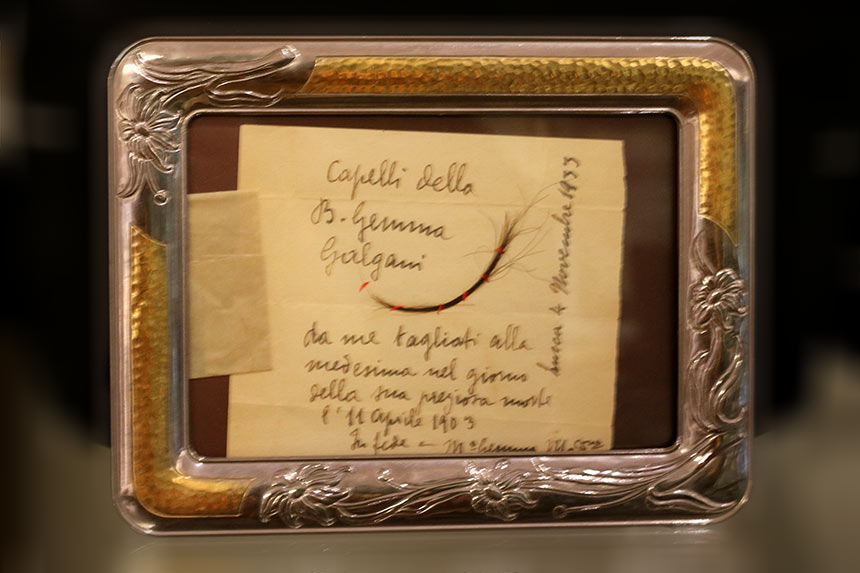 Capelli della
B. Gemma
Galgani
da me tagliati alla
medesima nel giorno
della sua preziosa morte
l'11 Aprile 1903
In fede - Mª Gemma
Lucca 4 Novembre 1933